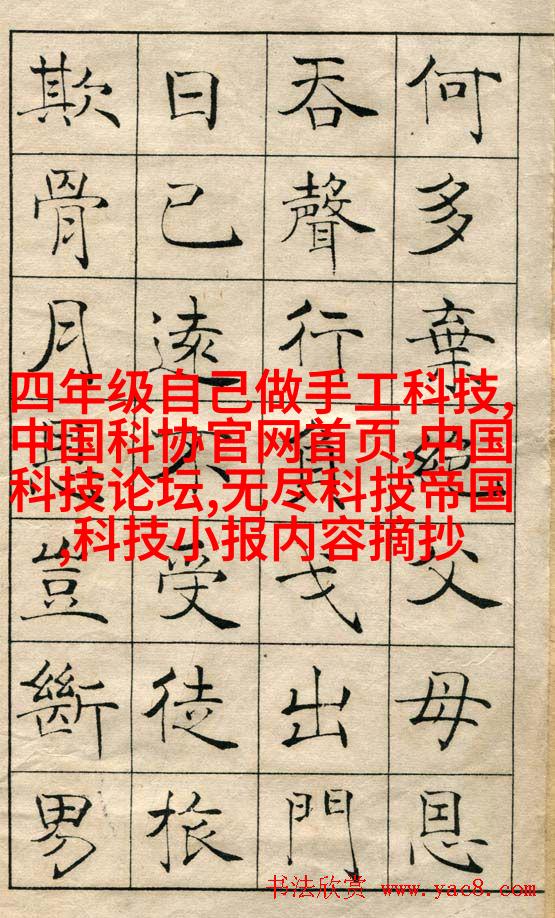 何多棄絕父母恩
吞聲行負戈出門
日已遠不受徒旅
欺骨月豈斷男
四年级自己做手工科技,
中国科协官网首页,中国
科技论坛,无尽科技帝国
,科技小报内容摘抄
书法欣赏 www.yac8.com